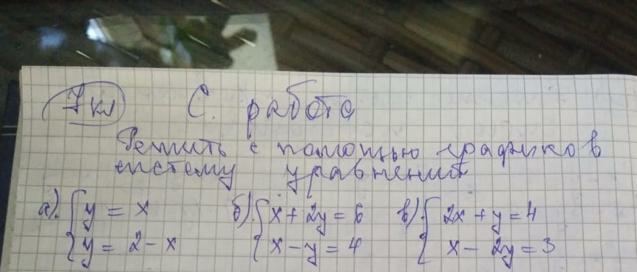 7 кл С. работа
Решить с помощью графиков
систему уравнений
а). { y = x б) { x + 2y = 6 в) { 2x + y = 4
{ y = 2 - x { x - y = 4 { x - 2y = 3